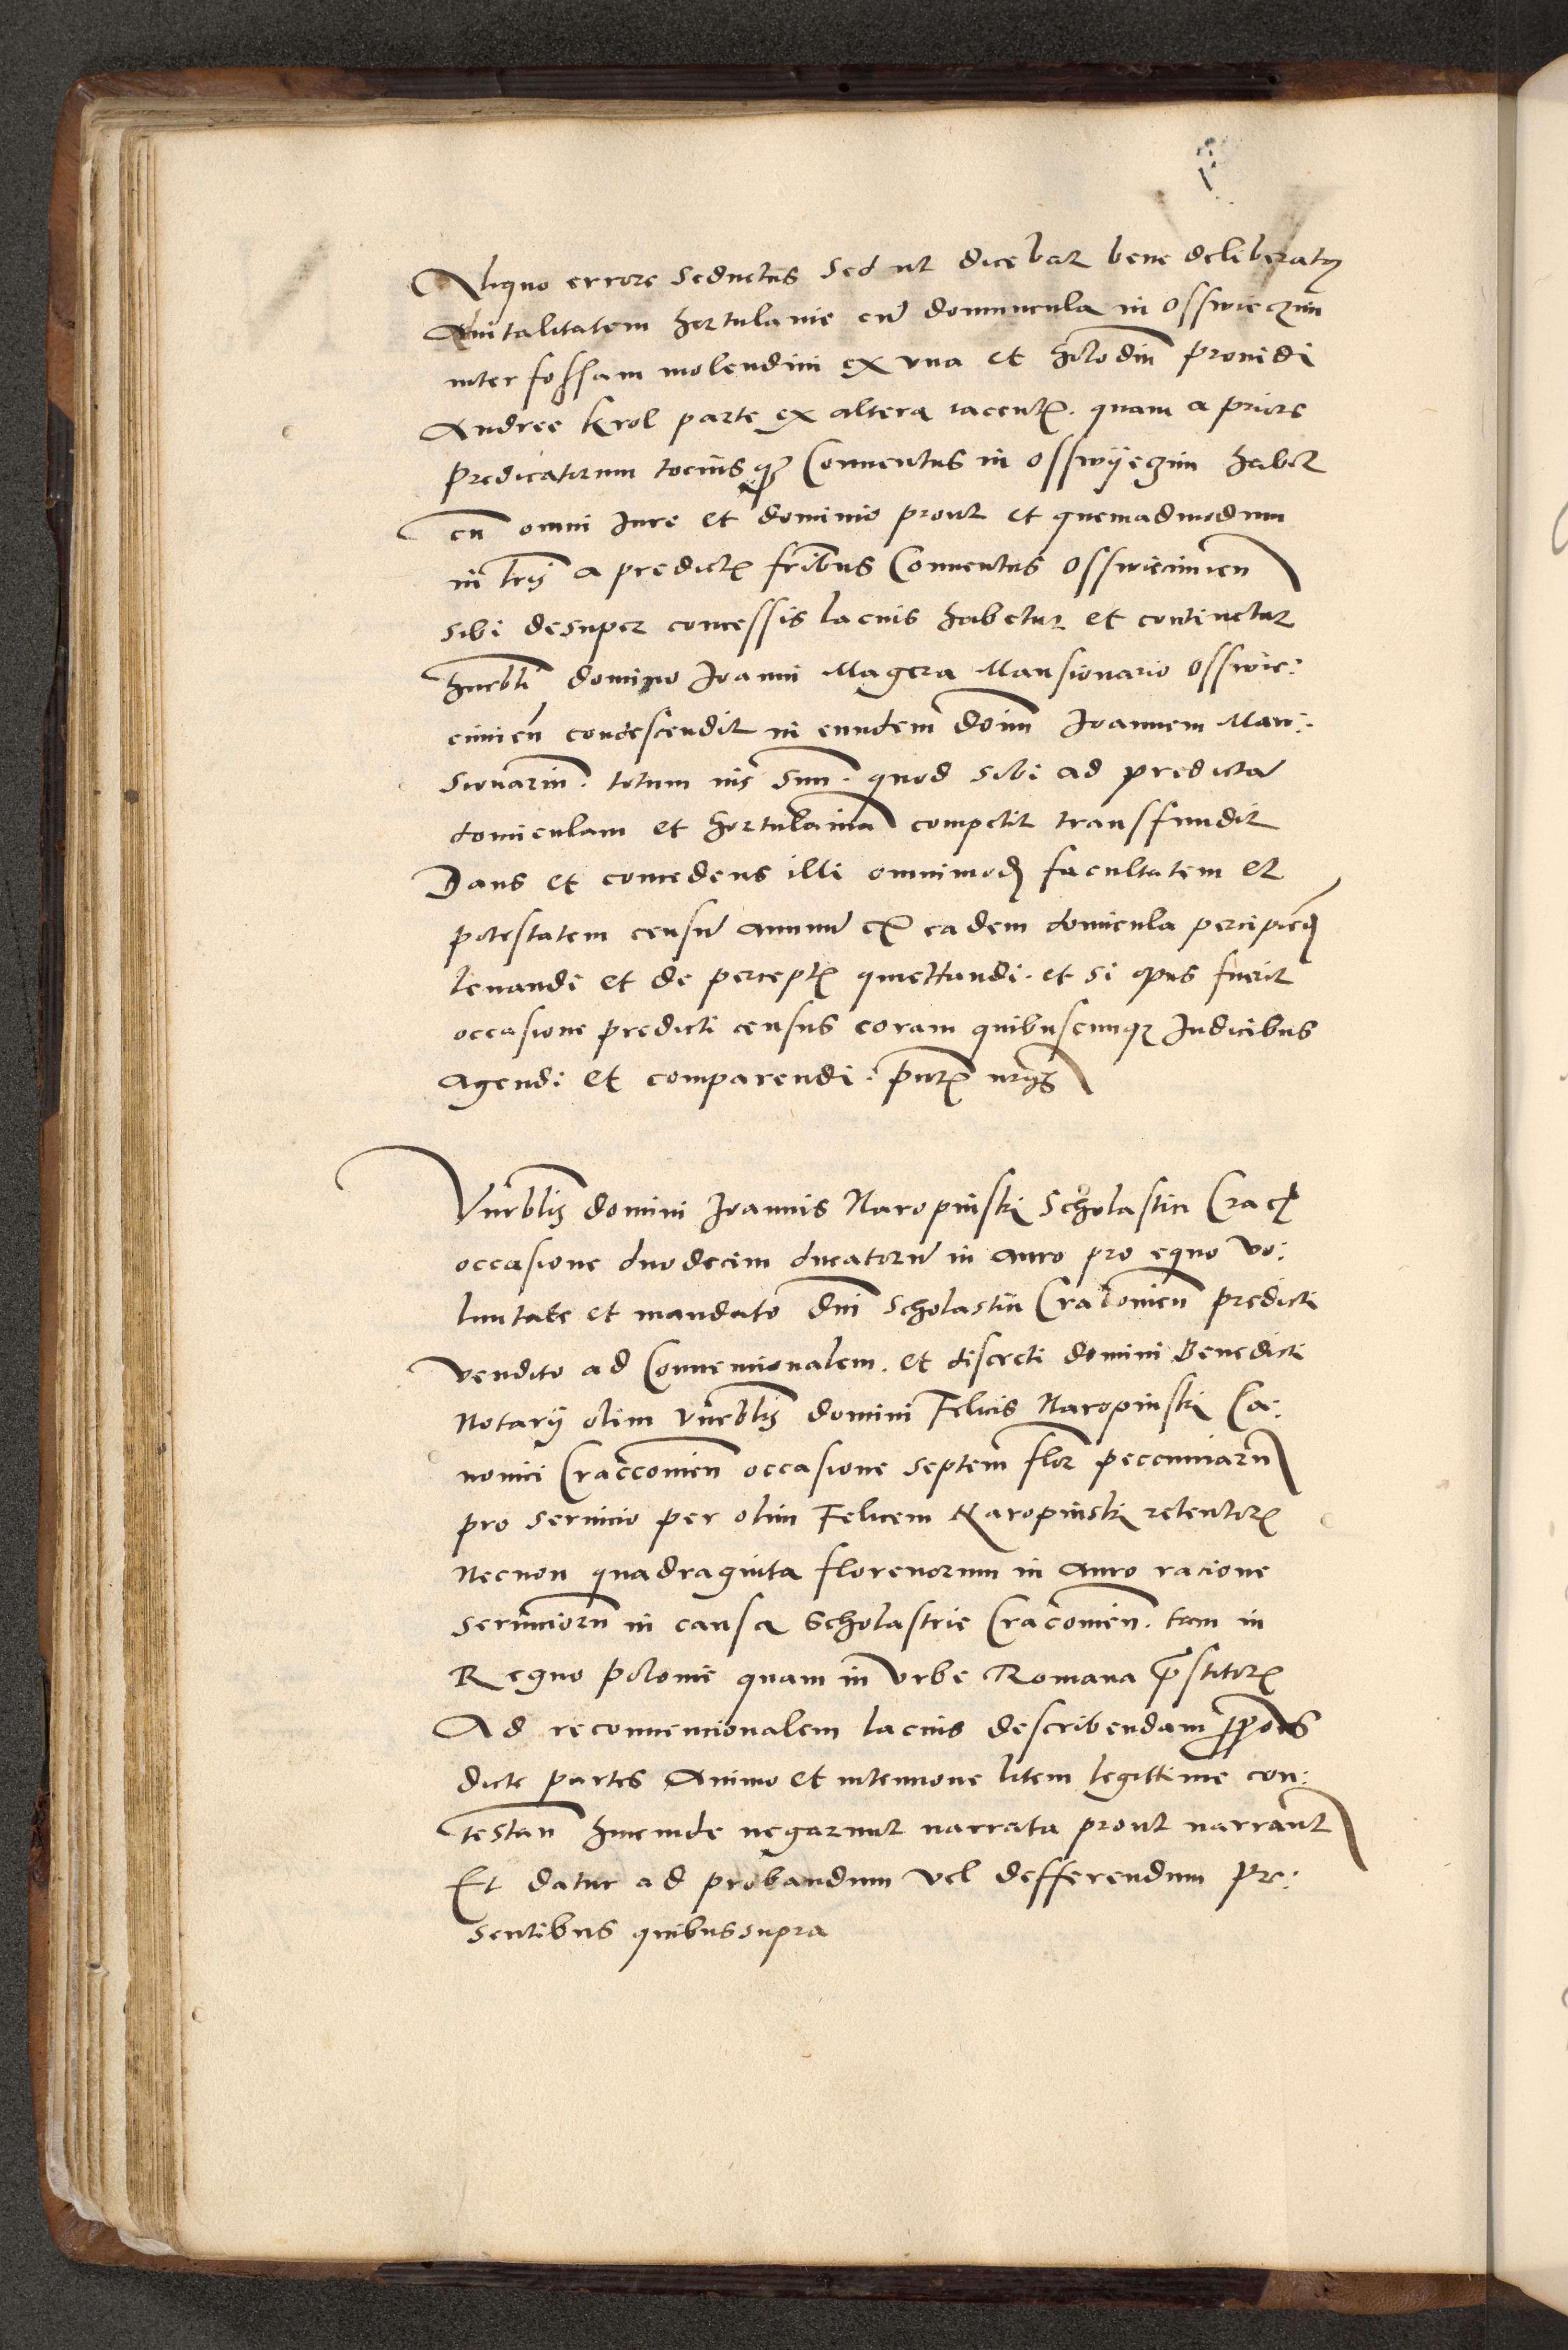 Aliquo errore seductus sed ut dicebat bene deliberatus
Avitalitatem hortulanie cum domuncula in Osswieczim
inter fossam molendini ex una et providi
Andree Krol parte ex altera iacentem. quam a priore
predicatorum tociusque Conventus in Osswyeczim habet
cum omni Jure et dominio prout et quemadmodum
in lris a predictis fribus Conventus Osswiecimien
sibi desuper concessis lacius habetur et continetur
honorabli domino Joanni Magera Mansionario Osswie:
cimien condescendit in eundem dnum Joannem Man:
sionarium. totum ius suum. quod sibi ad predictam
domiculam et hortulaniam competit transfundit
Dans et concedens illi omnimodam facultatem et
potestatem censum annuum ex eadem domicula percipiendi
levandi et de perceptis quiettandi. et si opus fuerit
occasione predicti census coram quibuscumque Judicibus
agendi et comparendi. pntibus
Venerablis domini Joannis Naropinski Scholastici Crac
occasione duodecim ducatorum in auro pro equo vo:
luntate et mandato dni Scholastici Cracovien predicti
vendito ad Convencionalem. et discreti domini Benedicti
Notarij olim Venerablis domini Felicis Naropinski Ca:
nonici Craccovien occasione septem flor peccuniarum
pro servicio per olim Felicem Naropinski retentorum
Necnon quadraginta florenorum in auro racione
serviciorum in causa Scholastrie Cracovien. tam in
Regno Polonie quam in Urbe Romana prestitorum
Ad reconvencionalem lacius describendam
dicte partes Animo et intencione litem legittime con:
testan hincinde negarunt narrata prout narrant
Et datur ad probandum vel defferendum Pre:
sentibus quibussupra